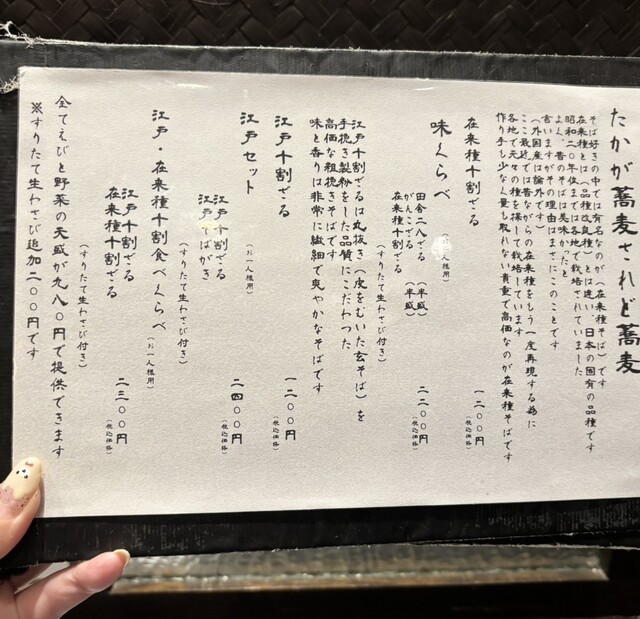 たかが蕎麦されど蕎麦
そば好きの中では有名なのが(在来種そば)です
在来種とは(品種改良種)とは違い、日本の固有の品種です
昭和二〇年位までは各地で栽培されていました
よく、昔のそばは美味かったと
言いますがその理由はまさにこのことです
(外国産は論外です)
ここ最近では昔ながらの在来種をもう一度再現する為に
各地で元々の種を探して栽培しています
作り手も少なく量も取れない貴重で高価なのが在来種そばです
在来種十割ざる 一二〇〇円
(税込価格)
味くらべ(お一人様用)
田舎二八ざる(半盛)
がんこざる
在来種十割ざる(半盛) 二二〇〇円
(税込価格)
(すりたて生わさび付き)
江戸十割ざるは丸抜き(皮をむいた玄そば)を
手挽き製粉をした品質にこだわった
高価な粗挽きそばです
味と香りは非常に繊細で爽やかなそばです
江戸十割ざる 一二〇〇円
(税込価格)
江戸セット(お一人様用)
江戸十割ざる
江戸そばがき 二四〇〇円
(税込価格)
(すりたて生わさび付き)
江戸・在来種十割食べくらべ(お一人様用)
江戸十割ざる
在来種十割ざる 二三〇〇円
(税込価格)
(すりたて生わさび付き)
全てえびと野菜の天盛が九八〇円で提供できます
※すりたて生わさび追加二〇〇円です